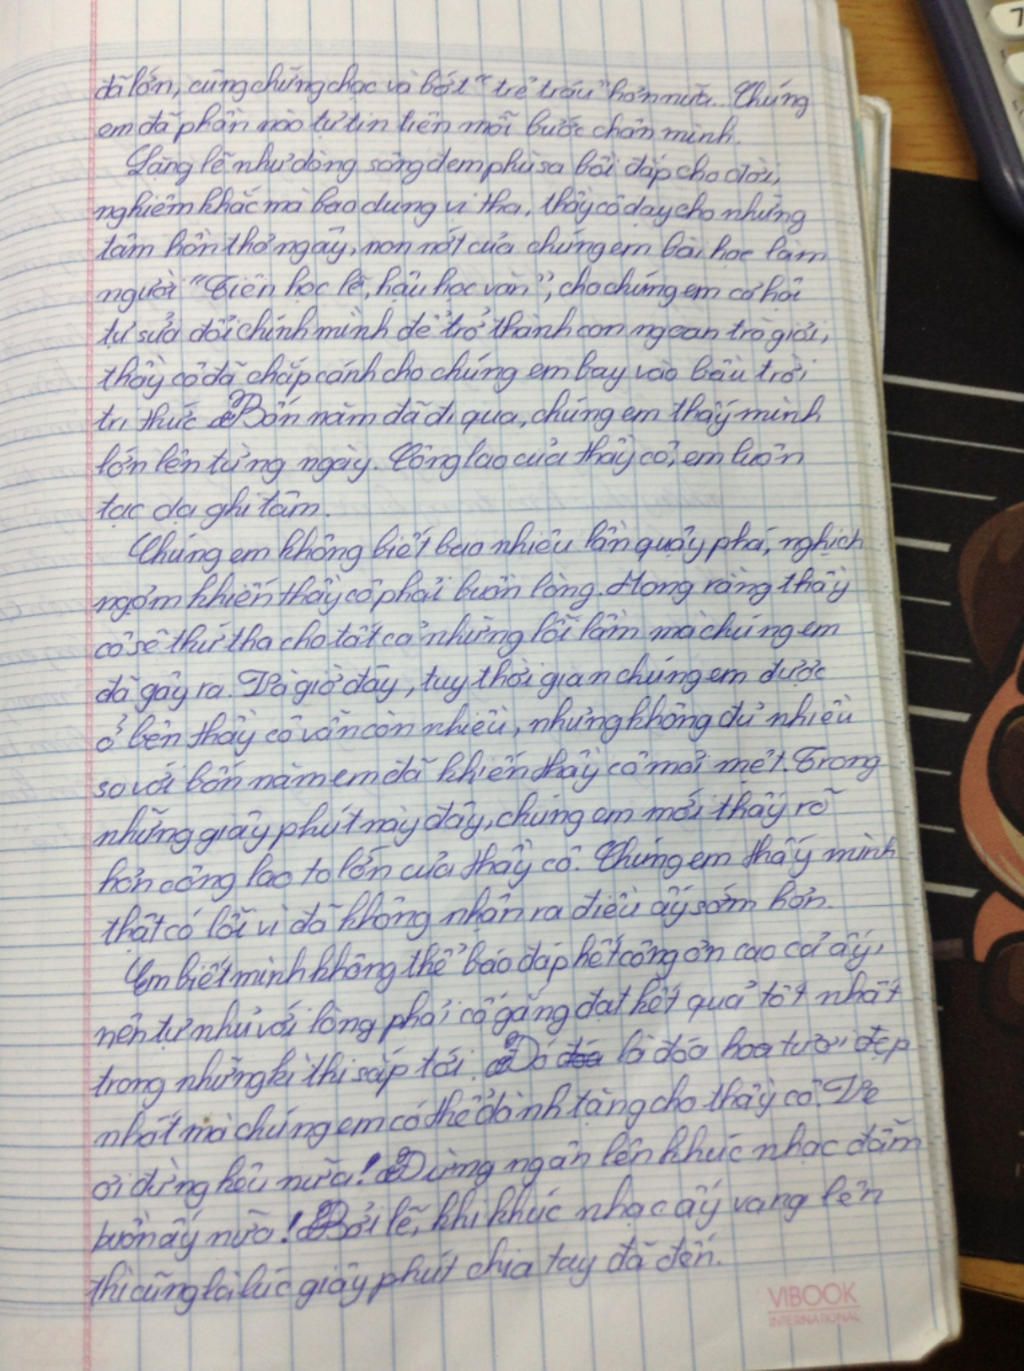 đã lớn, cũng chững chạc và bớt "trẻ trâu" hơn nữa. Chúng
em đã phần nào tự tin trên mỗi bước chân mình.
Lặng lẽ như dòng sông đem phù sa bồi đắp cho đời,
nghiêm khắc mà bao dung vị tha, thầy cô dạy cho những
tâm hồn thơ ngây, non nớt của chúng em bài học làm
người "Tiên học lễ, hậu học văn", cho chúng em cơ hội
tự sửa đổi chính mình để trở thành con ngoan trò giỏi,
thầy cô đã chắp cánh cho chúng em bay vào bầu trời
tri thức. Bốn năm đã đi qua, chúng em thấy mình
lớn lên từng ngày. Công lao của thầy cô, em luôn
tạc dạ ghi tâm.
Chúng em không biết bao nhiêu lần quậy phá, nghịch
ngợm khiến thầy cô phải buồn lòng. Mong rằng thầy
cô sẽ thứ tha cho tất cả những lỗi lầm mà chúng em
đã gây ra. Và giờ đây, tuy thời gian chúng em được
ở bên thầy cô vẫn còn nhiều, nhưng không đủ nhiều
so với bốn năm em đã khiến thầy cô mỏi mệt. Trong
những giây phút này đây, chúng em mới thấy rõ
hơn công lao to lớn của thầy cô. Chúng em thấy mình
thật có lỗi vì đã không nhận ra điều ấy sớm hơn.
Em biết mình không thể báo đáp hết công ơn cao cả ấy,
nên tự nhủ với lòng phải cố gắng đạt kết quả tốt nhất
trong những kì thi sắp tới. Đó là đóa hoa tươi đẹp
nhất mà chúng em có thể dành tặng cho thầy cô. Ve
ơi đừng kêu nữa! Đừng ngân lên khúc nhạc đẫm
buồn ấy nữa! Bởi lẽ, khi khúc nhạc ấy vang lên
thì cũng là lúc giây phút chia tay đã đến.
VIBOOK
INTERNATIONAL
7